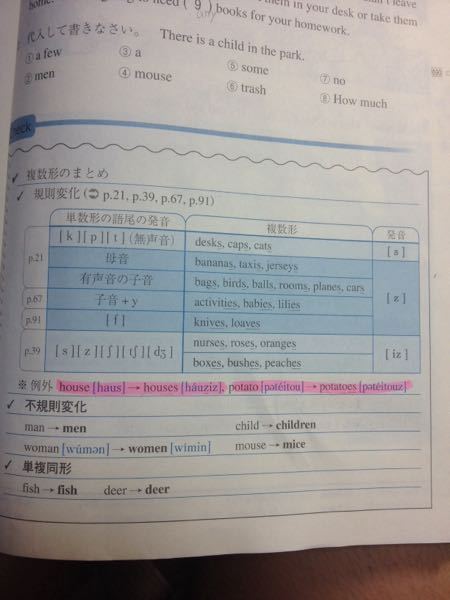 home.
need ( 9 ) books for your homework.
them in your desk or take them
代入して書きなさい。 There is a child in the park.
① a few ③ a ⑤ some ⑦ no
② men ④ mouse ⑥ trash ⑧ How much
eck
✓ 複数形のまとめ
✓ 規則変化 (➲ p.21, p.39, p.67, p.91)
単数形の語尾の発音 複数形 発音
p.21 [k][p][t](無声音) desks, caps, cats [s]
母音 bananas, taxis, jerseys [z]
有声音の子音 bags, birds, balls, rooms, planes, cars
p.67 子音+y activities, babies, lilies
p.91 [f] knives, loaves
p.39 [s][z][ʃ][tʃ][dʒ] nurses, roses, oranges [iz]
boxes, bushes, peaches
※ 例外 house [haus] → houses [háuziz], potato [pətéitou] → potatoes [pətéitouz]
✓ 不規則変化
man → men child → children
woman [wúmən] → women [wímin] mouse → mice
✓ 単複同形
fish → fish deer → deer